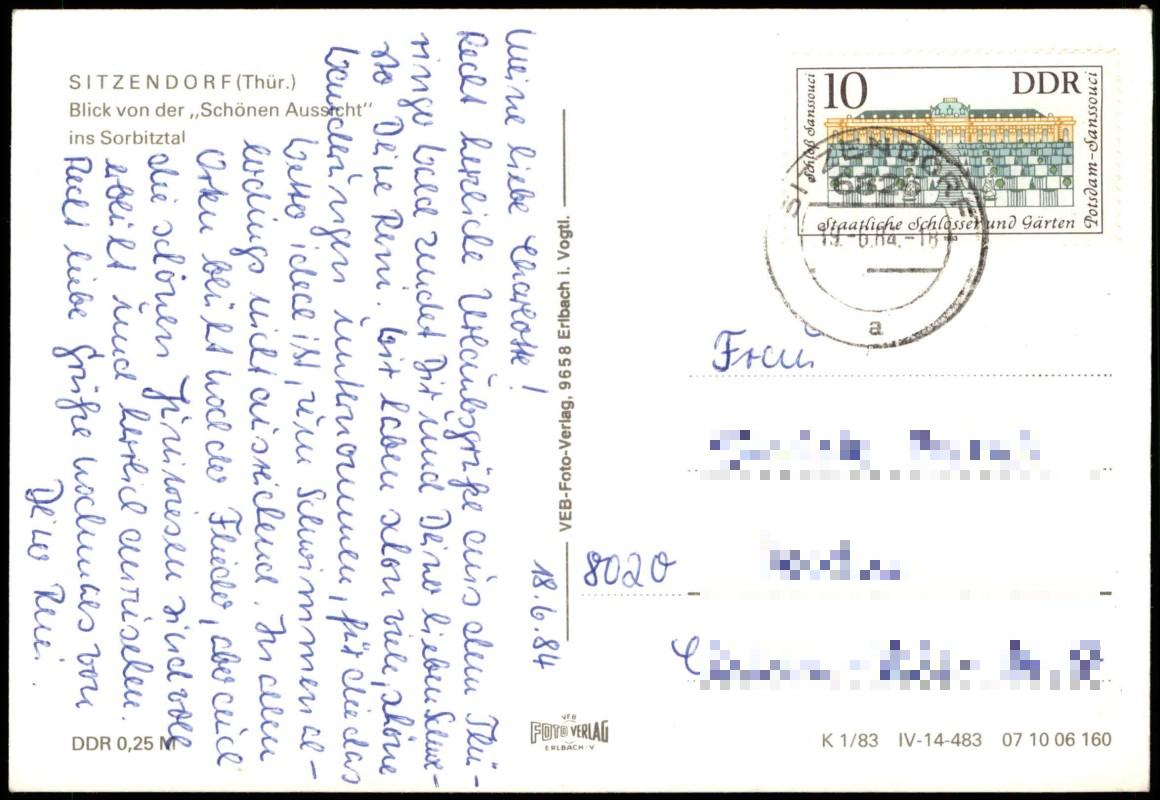 SITZENDORF (Thür.)
Blick von der „Schönen Aussicht"
ins Sorbitztal
Meine liebe
Recht herzliche Urlaubsgrüße aus dem Thü-
ringer Wald sendet Dir und Deinen lieben
Deine Reni. Wir haben schon viele, schöne
Wanderungen unternommen, für die das
Wetter ideal ist, zum Schwimmen al-
lerdings nicht ausreichend. In den
Orten blüht noch der Flieder, aber auch
die schönen Waldwiesen sind voll
erblüht und herrlich anzusehen.
Recht liebe Grüße nochmals von
Deiner Reni.
18.6.84
VEB-Foto-Verlag, 9658 Erlbach i. Vogtl.
10 DDR
Schloß Sanssouci
Potsdam-Sanssouci
Staatliche Schlösser und Gärten
SITZENDORF
682
19.-6.84.-18
a
Frau
8020
DDR 0,25 M
VEB
FOTO VERLAG
ERLBACH/V
K 1/83 IV-14-483 07 10 06 160